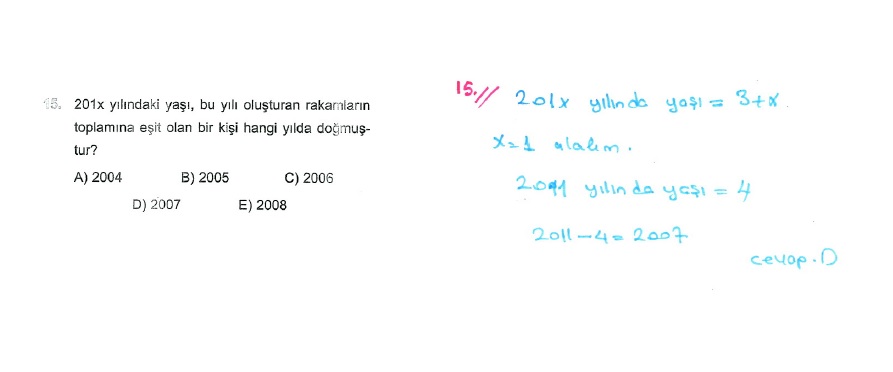 15. 201x yılındaki yaşı, bu yılı oluşturan rakamların
toplamına eşit olan bir kişi hangi yılda doğmuş-
tur?
A) 2004 B) 2005 C) 2006
D) 2007 E) 2008
15.//
201x yılında yaşı = 3+x.
x=1 alalım.
2011 yılında yaşı = 4
2011-4=2007
cevap.D